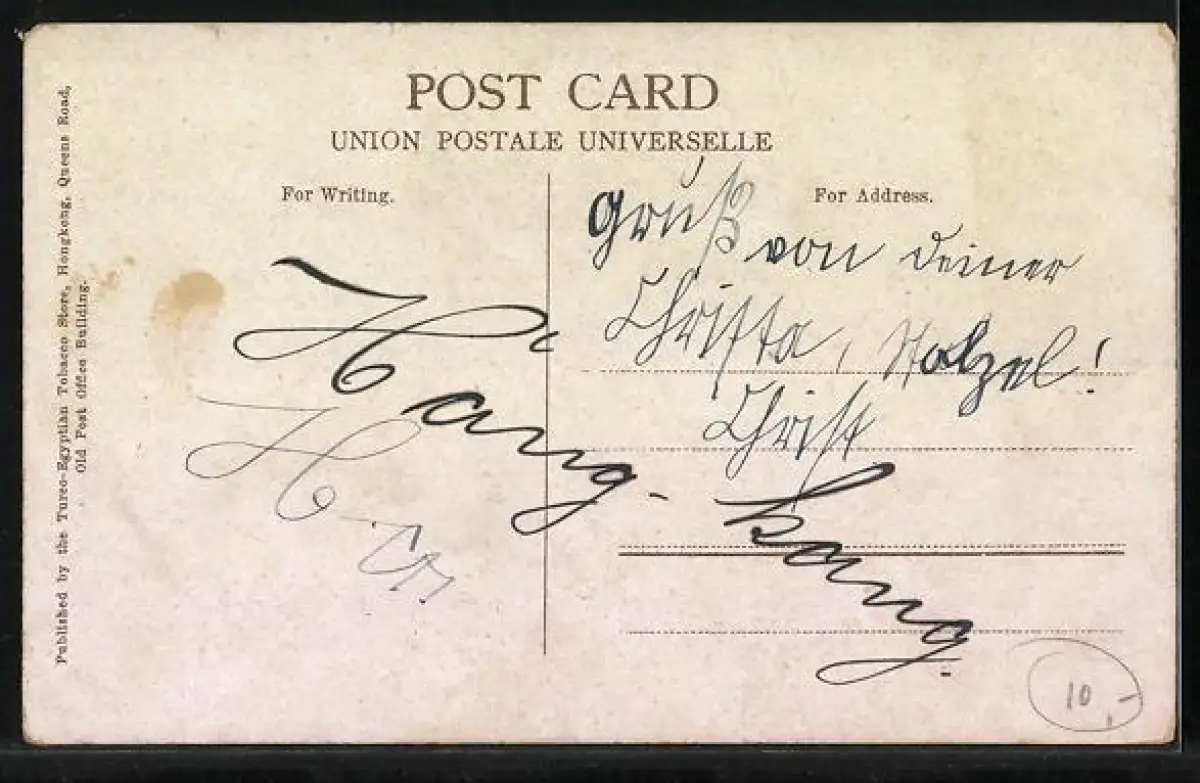 POST CARD
UNION POSTALE UNIVERSELLE
For Writing.
For Address.
Published by the Turco-Egyptian Tobacco Store, Hongkong, Queens Road,
Old Post Office Building.
Gruß von deiner
Christa, Stolzel!
Christ
Hang-kong.
H
10,-